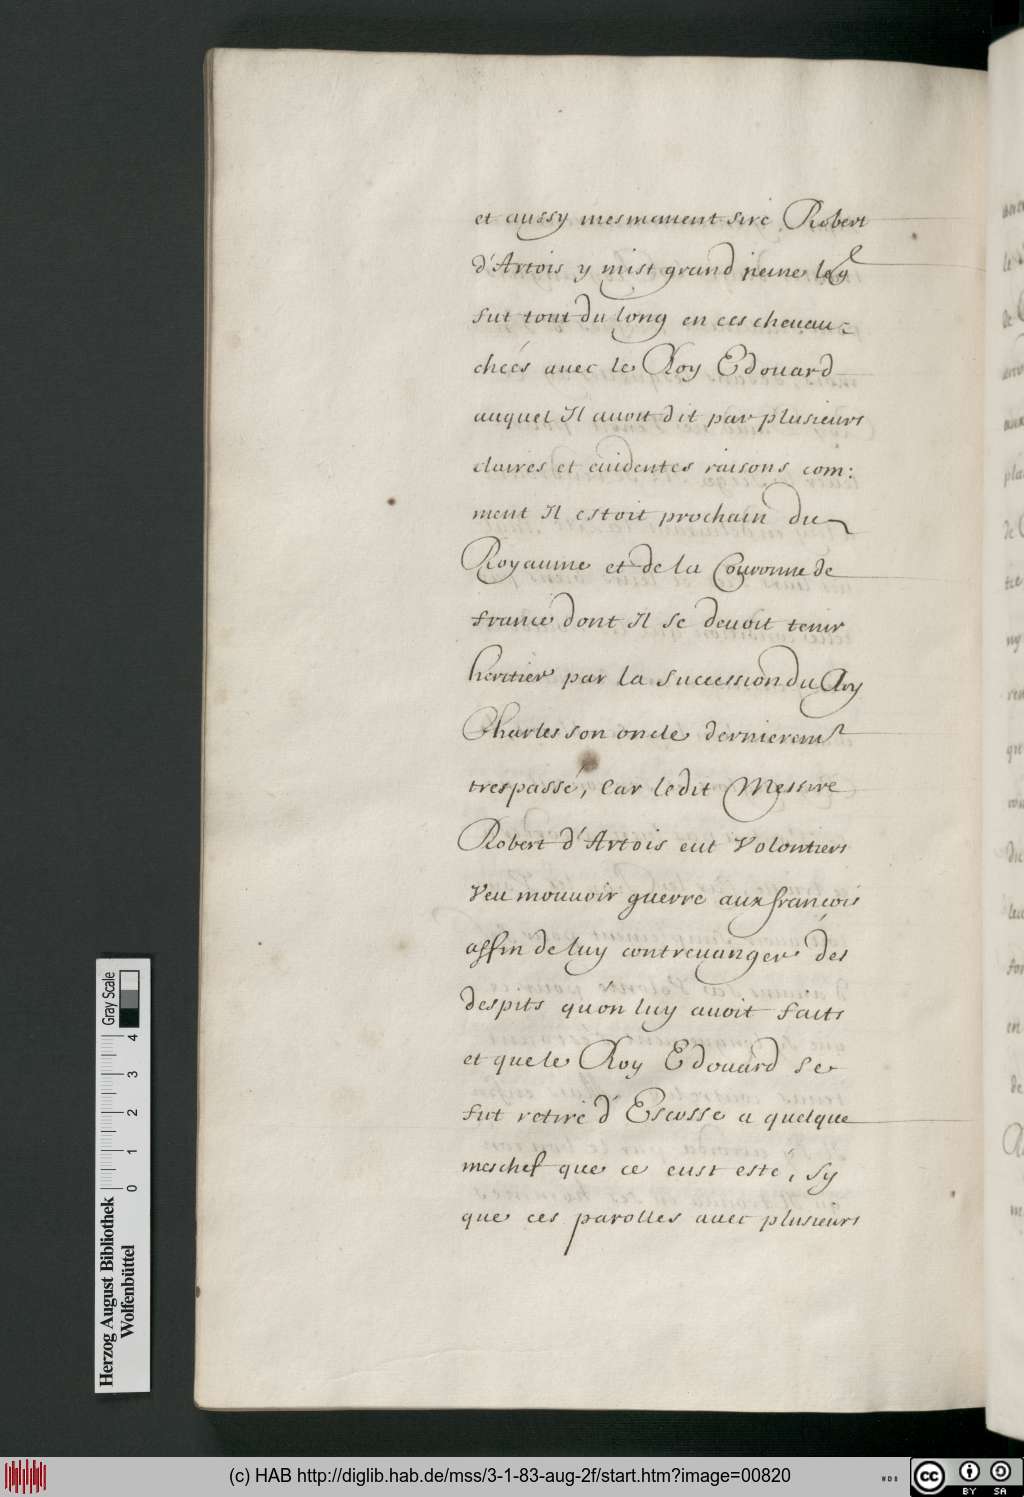 et aussy mesmament sire Robert
d'Artois y mist grand peine leql
fut tout du long en ces cheuau-
cheés auec le Roy Edouard
auquel Il auoit dit par plusieurs
claires et euidentes raisons com:
ment Il estoit prochain du
Royaume et de la Couronne de
france dont Il se deuoit tenir
heritier par la succession du Roy
Charles son oncle dernieremt
trespassé, Car ledit Messire
Robert d'Artois eut Volontiers
Veu mouuoir guerre aux françois
affin de luy contreuanger des
despits qu'on luy auoit faits
et que le Roy Edouard se
fut retiré d'Escosse a quelque
meschef que ce eust esté, sy
que ces parolles auec plusieurs
Herzog August Bibliothek
Wolfenbüttel
0 1 2 3 4
Gray Scale
(c) HAB http://diglib.hab.de/mss/3-1-83-aug-2f/start.htm?image=00820
cc BY SA